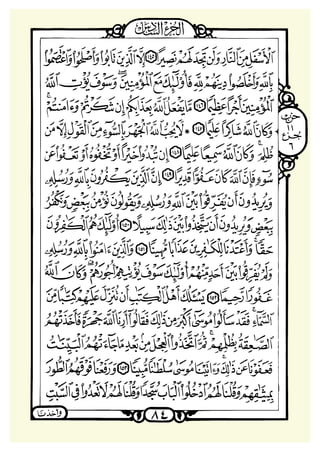 الجزء السادس
اَلْأَسْفَلِ مِنَ النَّارِ وَلَن تَجِدَ لَهُمْ نَصِيرًا إِلَّا الَّذِينَ تَابُوا وَأَصْلَحُوا وَاعْتَصَمُوا
بِاللَّهِ وَأَخْلَصُوا دِينَهُمْ لِلَّهِ فَأُوْلَٰئِكَ مَعَ الْمُؤْمِنِينَ وَسَوْفَ يُؤْتِ اللَّهُ
الْمُؤْمِنِينَ أَجْرًا عَظِيمًا مَا يَفْعَلُ اللَّهُ بِعَذَابِكُمْ إِن شَكَرْتُمْ وَءَامَنتُمْ
وَكَانَ اللَّهُ شَاكِرًا عَلِيمًا لَا يُحِبُّ اللَّهُ الْجَهْرَ بِالسُّوءِ مِنَ الْقَوْلِ إِلَّا مَن
ظُلِمَ وَكَانَ اللَّهُ سَمِيعًا عَلِيمًا إِن تُبْدُوا خَيْرًا أَوْ تُخْفُوهُ أَوْ تَعْفُوا عَن
سُوءٍ فَإِنَّ اللَّهَ كَانَ عَفُوًّا قَدِيرًا إِنَّ الَّذِينَ يَكْفُرُونَ بِاللَّهِ وَرُسُلِهِ
وَيُرِيدُونَ أَن يُفَرِّقُوا بَيْنَ اللَّهِ وَرُسُلِهِ وَيَقُولُونَ نُؤْمِنُ بِبَعْضٍ وَنَكْفُرُ
بِبَعْضٍ وَيُرِيدُونَ أَن يَتَّخِذُوا بَيْنَ ذَٰلِكَ سَبِيلًا أُوْلَٰئِكَ هُمُ الْكَٰفِرُونَ
حَقًّا وَأَعْتَدْنَا لِلْكَٰفِرِينَ عَذَابًا مُّهِينًا وَالَّذِينَ ءَامَنُوا بِاللَّهِ وَرُسُلِهِ
وَلَمْ يُفَرِّقُوا بَيْنَ أَحَدٍ مِّنْهُمْ أُوْلَٰئِكَ سَوْفَ يُؤْتِيهِمْ أُجُورَهُمْ وَكَانَ اللَّهُ
غَفُورًا رَّحِيمًا يَسْـَٔلُكَ أَهْلُ الْكِتَٰبِ أَن تُنَزِّلَ عَلَيْهِمْ كِتَٰبًا مِّنَ
السَّمَاءِ فَقَدْ سَأَلُوا مُوسَىٰ أَكْبَرَ مِن ذَٰلِكَ فَقَالُوا أَرِنَا اللَّهَ جَهْرَةً فَأَخَذَتْهُمُ
الصَّٰعِقَةُ بِظُلْمِهِمْ ثُمَّ اتَّخَذُوا الْعِجْلَ مِن بَعْدِ مَا جَاءَتْهُمُ الْبَيِّنَٰتُ
فَعَفَوْنَا عَن ذَٰلِكَ وَءَاتَيْنَا مُوسَىٰ سُلْطَٰنًا مُّبِينًا وَرَفَعْنَا فَوْقَهُمُ الطُّورَ
بِمِيثَٰقِهِمْ وَقُلْنَا لَهُمُ ادْخُلُوا الْبَابَ سُجَّدًا وَقُلْنَا لَهُمْ لَا تَعْدُوا فِي السَّبْتِ
حزب
١١
جزء
٦
٨٤
وأخذنا